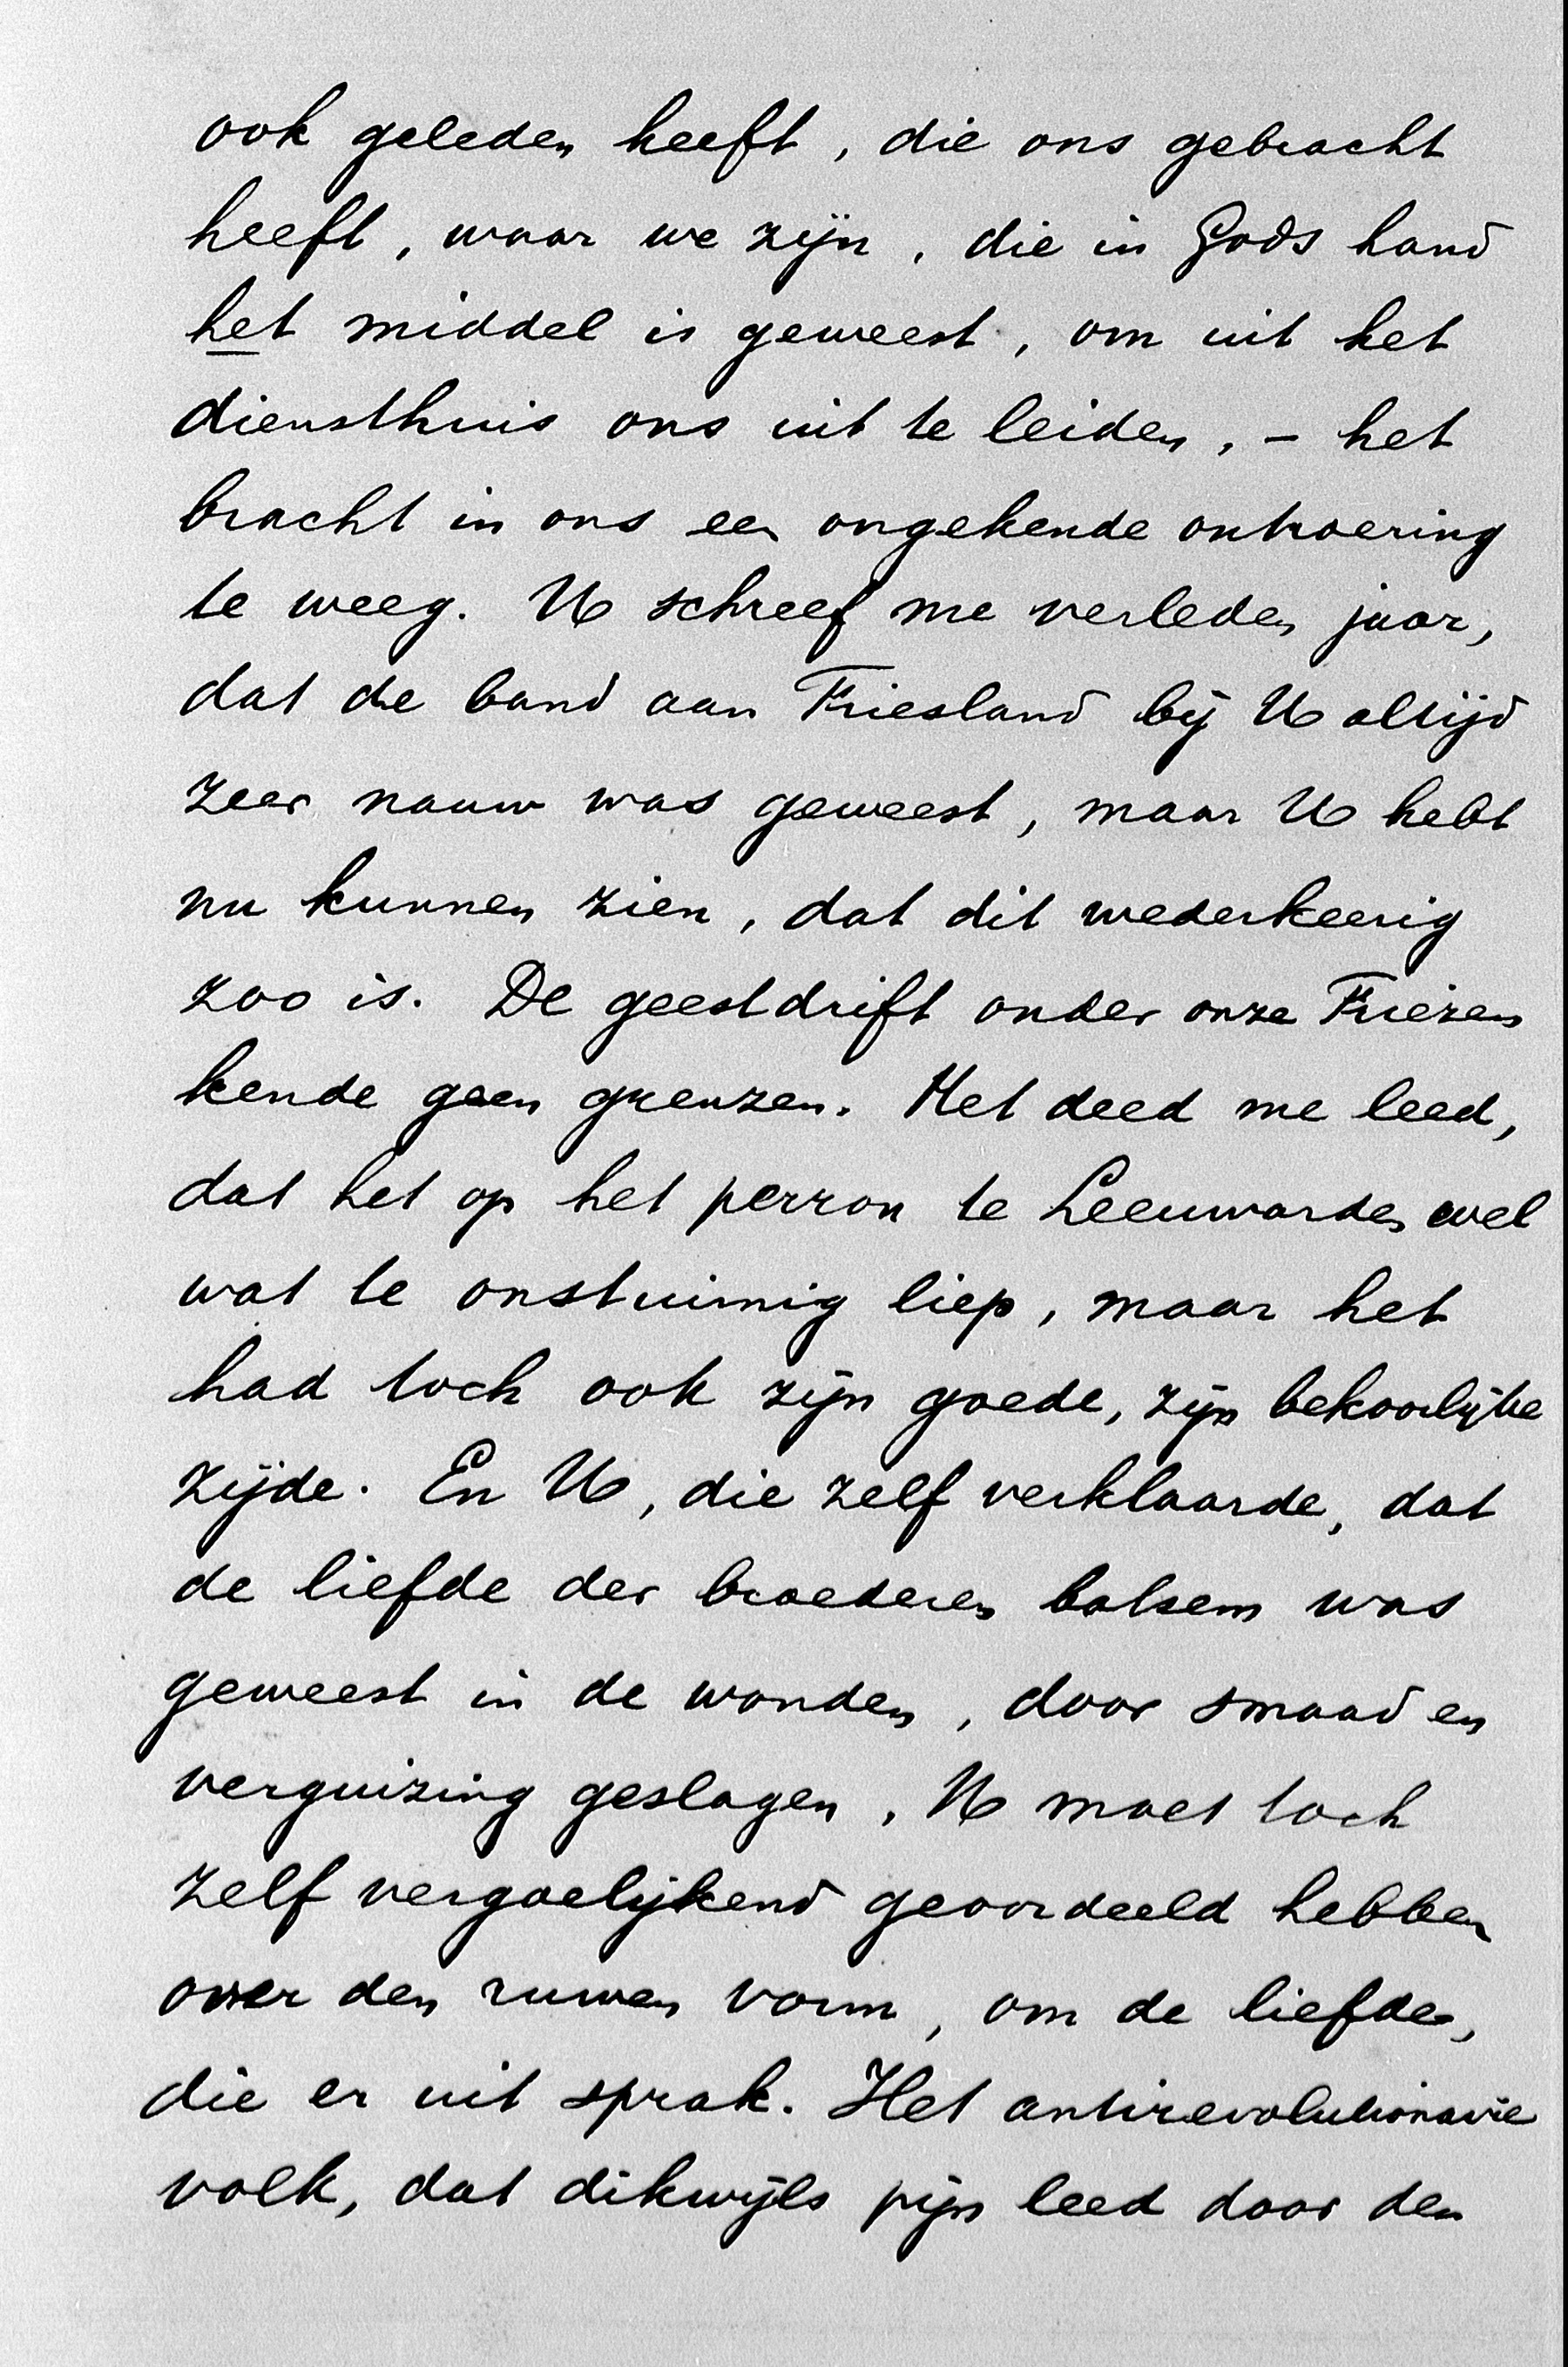 ook geleden heeft, die ons gebracht
heeft, waar we zijn, die in Gods hand
het middel is geweest, om uit het
diensthuis ons uit te leiden, - het
bracht in ons een ongekende ontroering
te weeg. U schreef me verleden jaar,
dat de band aan Friesland bij U altijd
zeer nauw was geweest, maar U hebt
nu kunnen zien, dat dit wederkeerig
zoo is. De geestdrift onder onze Friezen
kende geen grenzen. Het deed me leed,
dat het op het perron te Leeuwarden wel
wat te onstuimig liep, maar het
had toch ook zijn goede, zijn bekoorlijke
zijde. En U, die zelf verklaarde, dat
de liefde der broederen balsem was
geweest in de wonden, door smaad en
verguizing geslagen, U moet toch
zelf vergoelijkend geoordeeld hebben
over den ruwen vorm, om de liefde,
die er uit sprak. Het antirevolutionaire
volk, dat dikwijls pijn leed door den